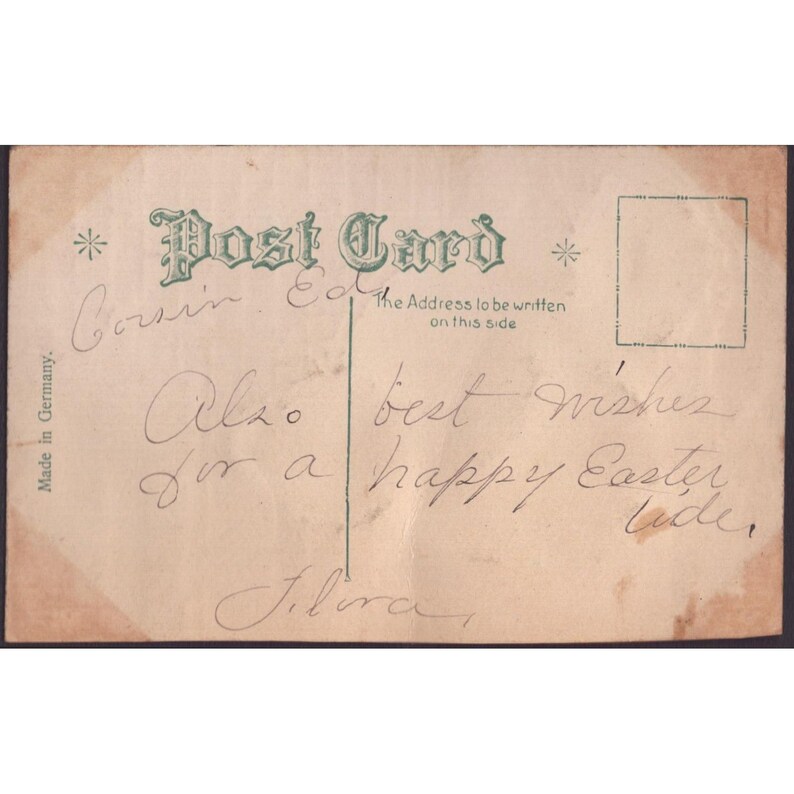 Post Card
Cousin Ed,
The Address to be written
on this side
Made in Germany.
Also best wishes
for a happy Easter
tide.
Flora,